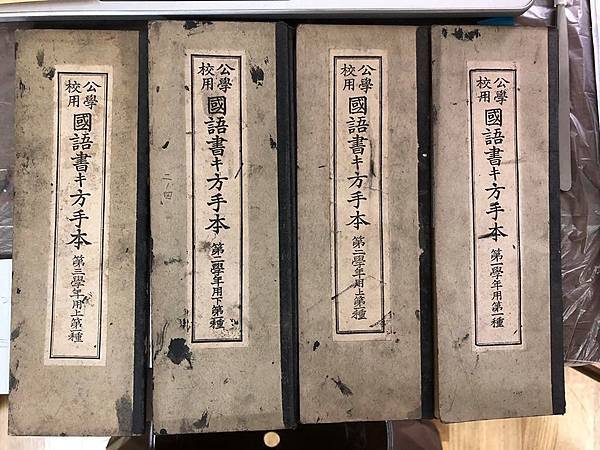 公學校用 國語書キ方手本 第一學年用第一種
公學校用 國語書キ方手本 第二學年用上第一種
公學校用 國語書キ方手本 第二學年用下第一種
公學校用 國語書キ方手本 第三學年用上第一種